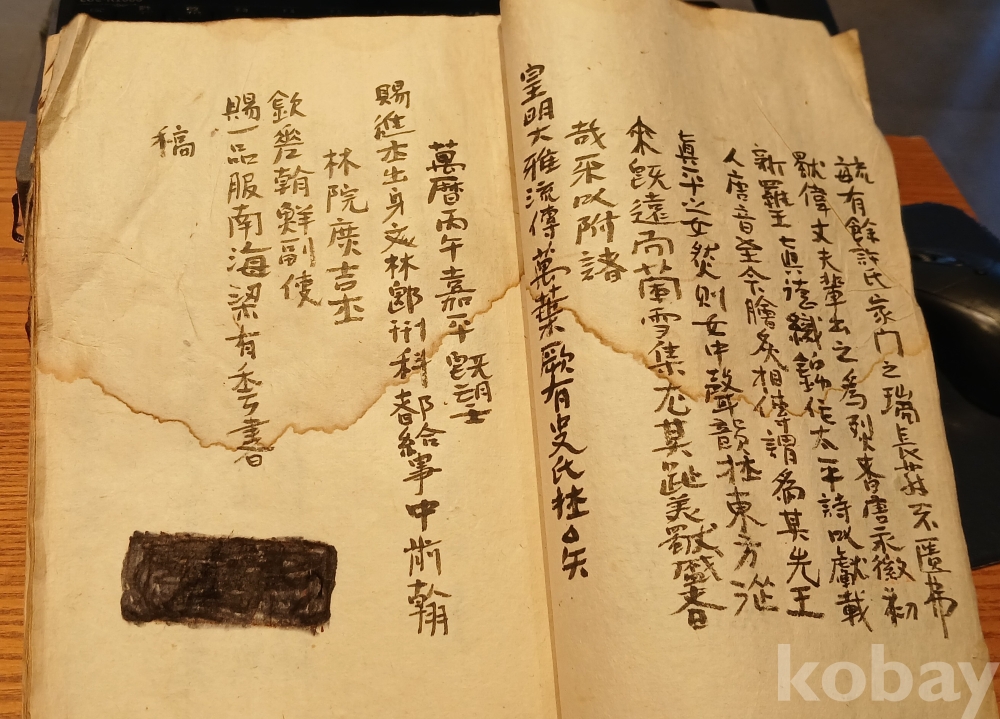 毓有餘許氏家門之瑞長發不匱弗
猷偉丈夫輩出之爲烈耆唐永徽初
新羅王眞德織錦作太平詩以獻載
人唐音至今膾炙相傳謂爲其先王
眞平之女然則女中聲韻在東方從
來旣遠而蘭雪集尤其趾美猷盛者
哉采以附諸
皇明大雅流傳萬葉厥有史氏在矣
萬曆丙午嘉平旣望
賜進士出身文林郎刑科都給事中前翰
林院庶吉士
欽差朝鮮副使
賜一品服南海梁有年書
稿
kobay